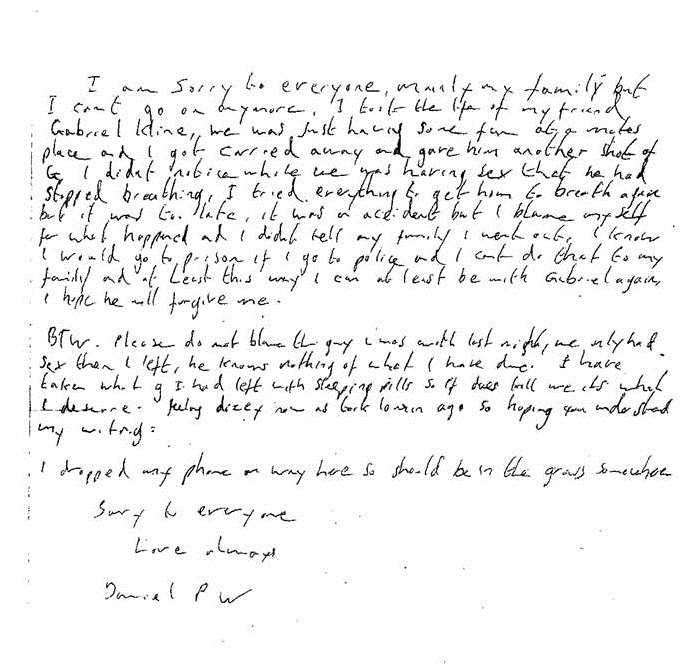 I am sorry to everyone, mainly my family but
I cant go on anymore, I took the life of my friend
Gabriel Kline, we was just having some fun at a mates
place and I got carried away and gave him another shot of
G I didnt notice while we was having sex that he had
stopped breathing, I tried everything to get him to breath again
but it was to late, it was a accident but I blame myself
for what happened and I didnt tell my family I went out, I know
I would go to prison if I go to police and I cant do that to my
family and at least this way I can at least be with Gabriel again,
I hope he will forgive me.
BTW. Please do not blame the guy I was with last night, we only had
sex then I left, he knows nothing of what I have done. I have
taken what g I had left with sleeping pills so if it does kill me its what
I deserve. Feeling dizzy now as took 10 min ago so hoping you understand
my writing.
I dropped my phone on way here so should be in the grass somewhere
Sorry to everyone
Love always
Daniel P W